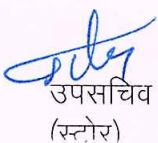 उपसचिव
(स्टोर)